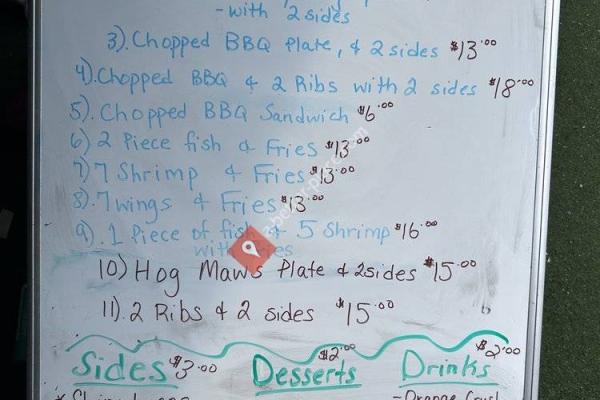 - with 2 sides
3). Chopped BBQ Plate, & 2 sides $13.00
4). Chopped BBQ & 2 Ribs with 2 sides $18.00
5). Chopped BBQ Sandwich $6.00
6) 2 Piece fish & Fries $13.00
7) 7 Shrimp & Fries $13.00
8). 7 wings & Fries $13.00
9). 1 Piece of fish & 5 Shrimp $16.00
with Fries
10) Hog Maws Plate & 2 sides $15.00
11). 2 Ribs & 2 sides $15.00
Sides $3.00 Desserts $2.00 Drinks $2.00
- Orange Crush